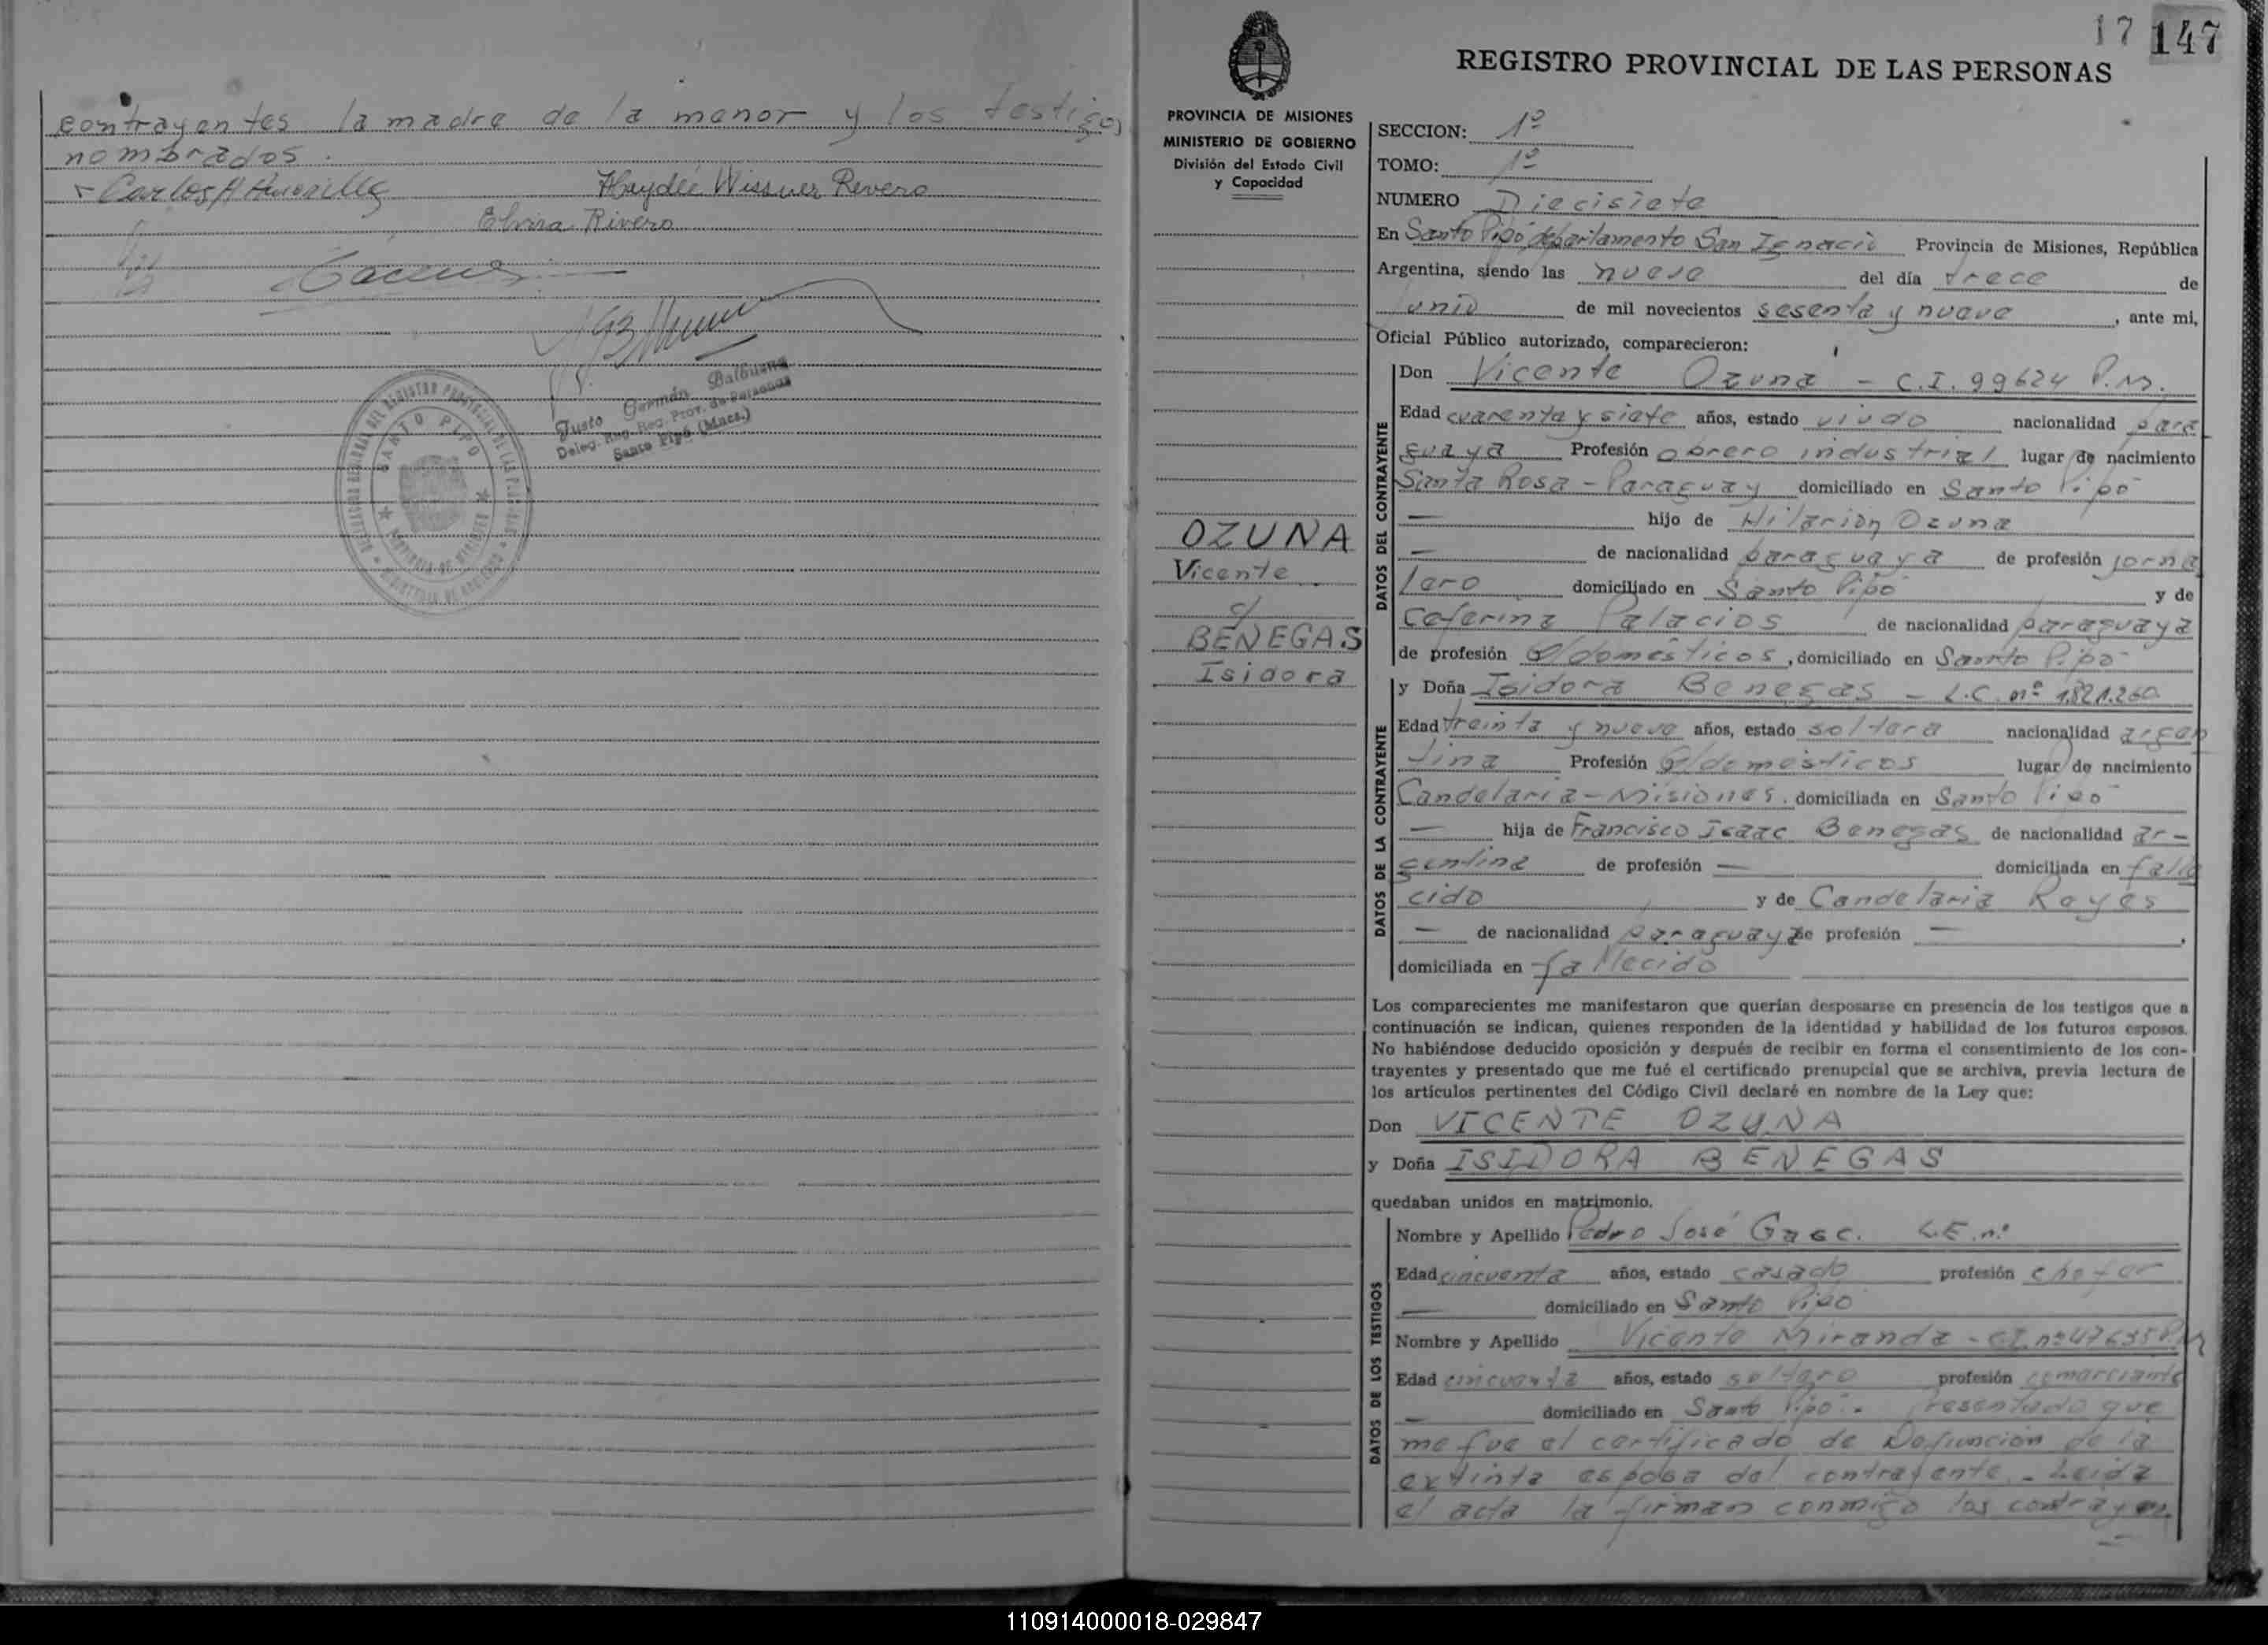 contrayentes la madre de la menor y los testigos
nombrados.
Haydeé Wissner Rivero
Elvira Rivero
Justo Germán Balbuena
Deleg. Reg. Reg. Prov. de Personas
Santo Pipó (Mnes.)
SANTO PIPO
17 147
REGISTRO PROVINCIAL DE LAS PERSONAS
PROVINCIA DE MISIONES
MINISTERIO DE GOBIERNO
División del Estado Civil
y Capacidad
OZUNA
Vicente
c/
BENEGAS
Isidora
SECCION: 1º
TOMO: 1º
NUMERO Diecisiete
En Santo Pipó departamento San Ignacio Provincia de Misiones, República
Argentina, siendo las nueve del día trece de
Junio de mil novecientos sesenta y nueve, ante mi,
Oficial Público autorizado, comparecieron:
DATOS DEL CONTRAYENTE
Don Vicente Ozuna - C.I. 99624 P.M.
Edad cuarenta y siete años, estado viudo nacionalidad para
guaya Profesión obrero industrial lugar de nacimiento
Santa Rosa - Paraguay domiciliado en Santo Pipó
— hijo de Hilarión Ozuna
— de nacionalidad paraguaya de profesión jorna
lero domiciliado en Santo Pipó y de
Ceferina Palacios de nacionalidad paraguaya
de profesión Q/domésticos, domiciliado en Santo Pipó
DATOS DE LA CONTRAYENTE
y Doña Isidora Benegas - L.C. nº 1.821.260
Edad treinta y nueve años, estado soltera nacionalidad argen
tina Profesión Q/domésticos lugar de nacimiento
Candelaria - Misiones. domiciliada en Santo Pipó
— hija de Francisco Isaac Benegas de nacionalidad ar-
gentina de profesión — domiciliada en falle
cido y de Candelaria Reyes
— de nacionalidad paraguaya de profesión — ,
domiciliada en fallecido
Los comparecientes me manifestaron que querían desposarse en presencia de los testigos que a
continuación se indican, quienes responden de la identidad y habilidad de los futuros esposos.
No habiéndose deducido oposición y después de recibir en forma el consentimiento de los con-
trayentes y presentado que me fué el certificado prenupcial que se archiva, previa lectura de
los artículos pertinentes del Código Civil declaré en nombre de la Ley que:
Don VICENTE OZUNA
y Doña ISIDORA BENEGAS
quedaban unidos en matrimonio.
DATOS DE LOS TESTIGOS
Nombre y Apellido Pedro José Gasc. L.E. nº
Edad cincuenta años, estado casado profesión chofer
— domiciliado en Santo Pipó
Nombre y Apellido Vicente Miranda - C.I. nº 47635 P.M
Edad cincuenta años, estado soltero profesión comerciante
— domiciliado en Santo Pipó. Presentado que
me fue el certificado de Defunción de la
extinta esposa del contrayente. - Leida
el acta la firman conmigo los contrayen
110914000018-029847